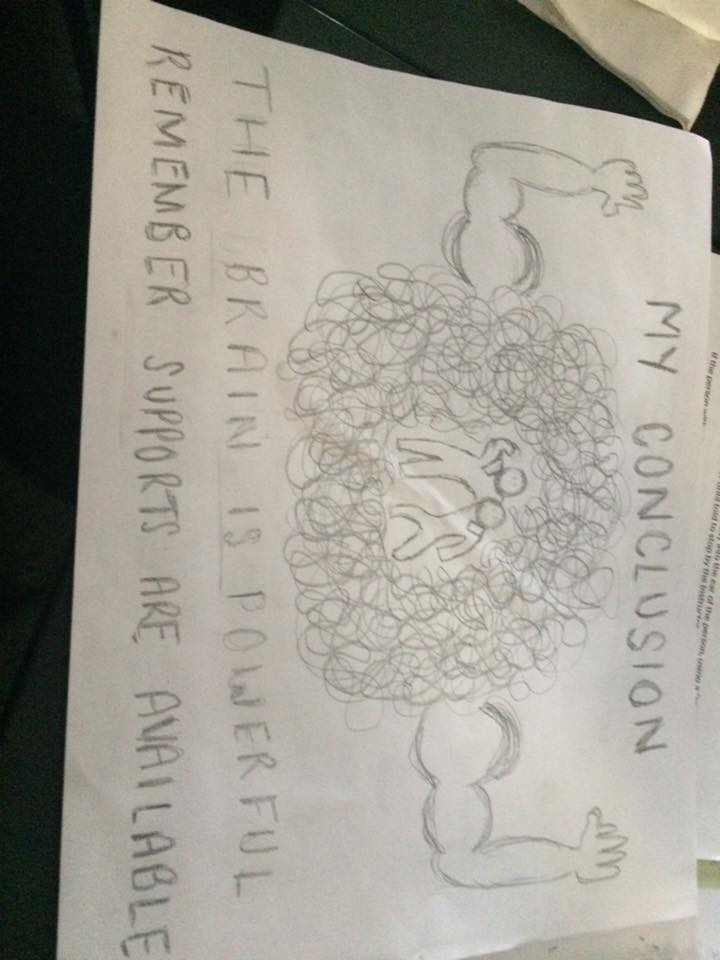 MY CONCLUSION
THE BRAIN IS POWERFUL
REMEMBER SUPPORTS ARE AVAILABLE
If the person
the ear of the person, using a
told to stop by the